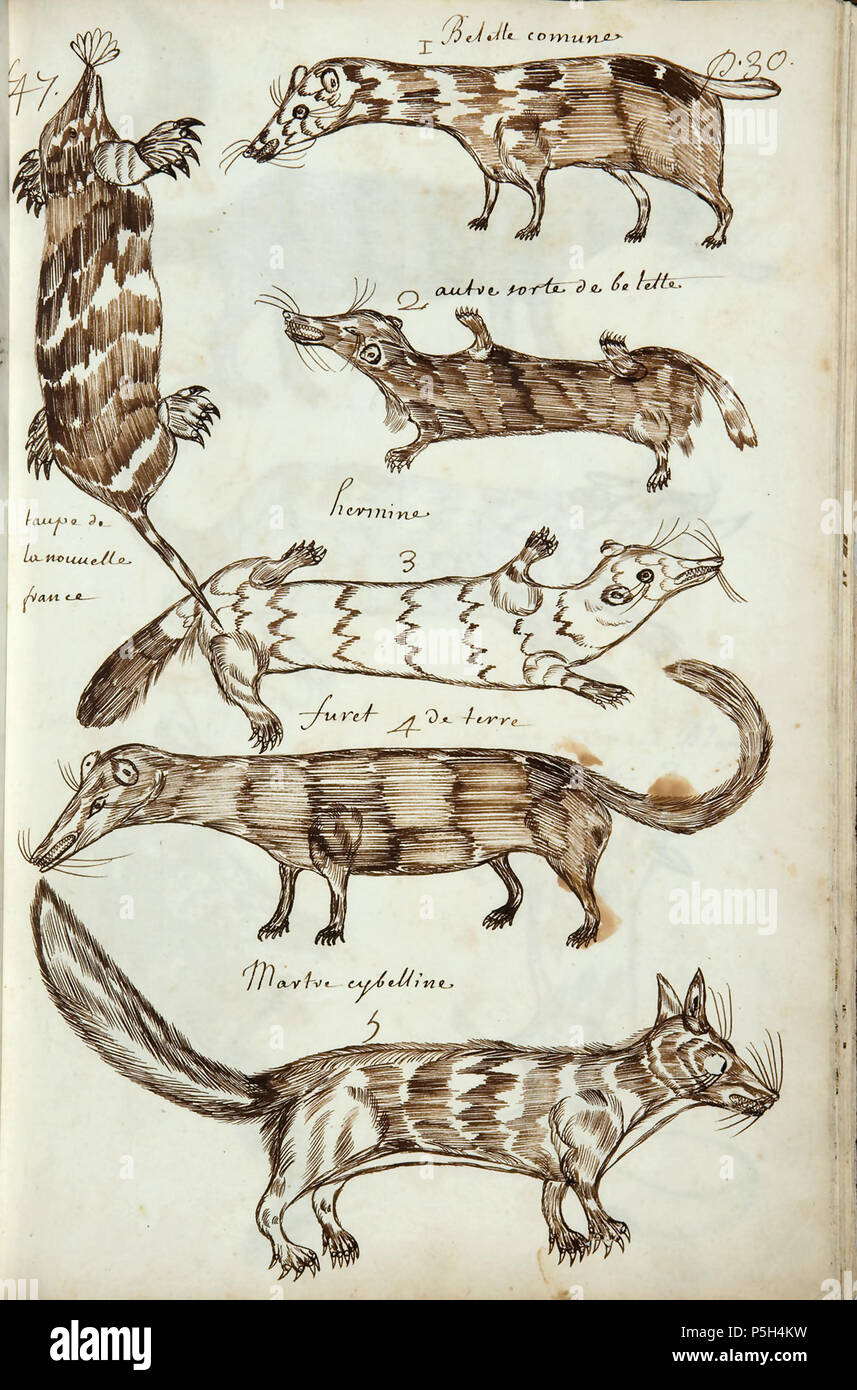 I Belette comune
p. 30.
47.
2 autre sorte de belette
hermine
3
taupe de
la nouuelle
france
furet 4 de terre
Martre cybelline
5
alamy
Image ID: P5H4KW
www.alamy.com